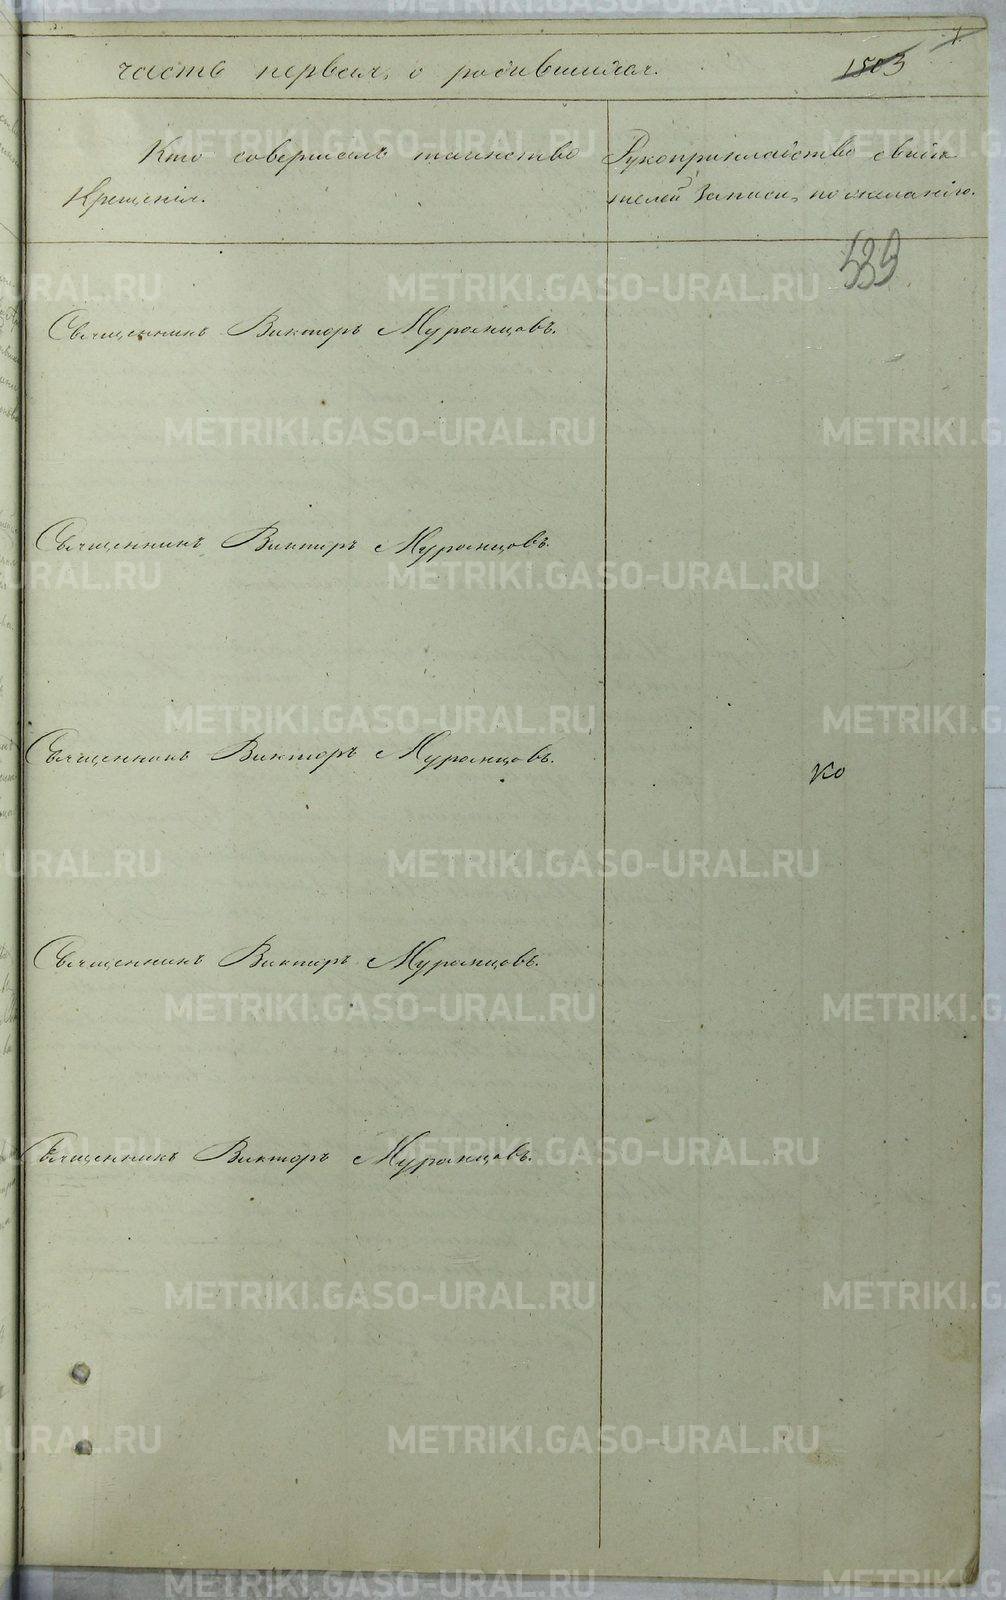 часть первая, о родившихся.
1503
Кто совершалъ таинство
Крещенія.
Рукоприкладство свидѣ
телей записи, по желанію.
539
Священникъ Викторъ Муромцовъ.
Священникъ Викторъ Муромцовъ.
Священникъ Викторъ Муромцовъ.
Ко
Священникъ Викторъ Муромцовъ.
Священникъ Викторъ Муромцовъ.
METRIKI.GASO-URAL.RU